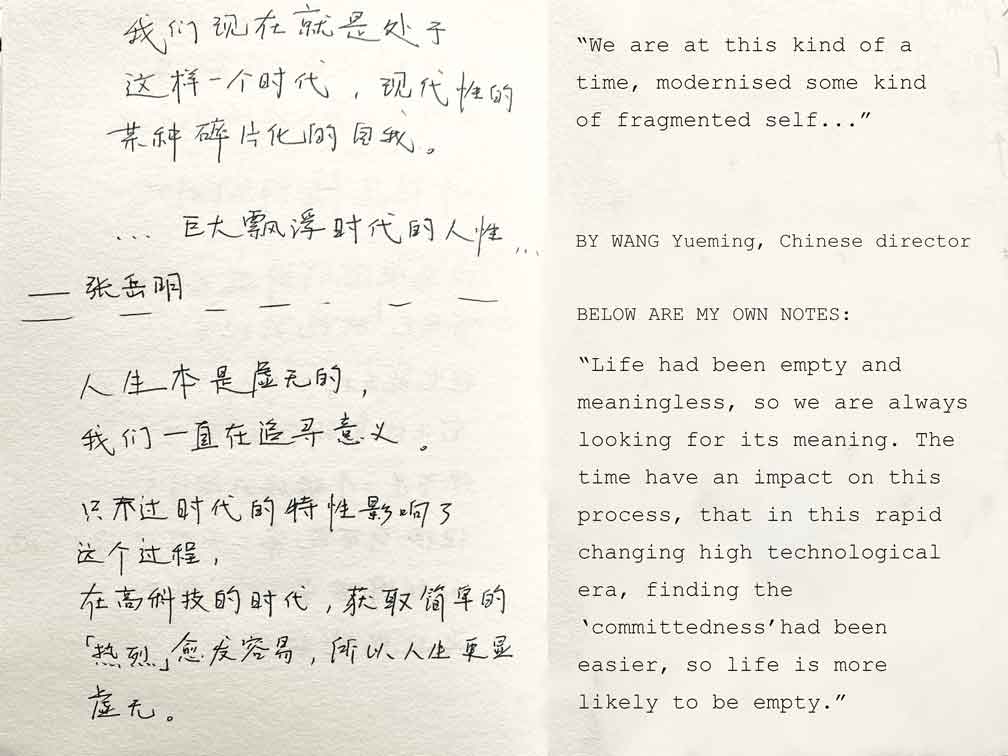 我们现在就是处于
这样一个时代，现代性的
某种碎片化的自我。
... 巨大飘浮时代的人性...
——张岳明
人生本是虚无的，
我们一直在追寻意义。
只不过时代的特性影响了
这个过程，
在高科技的时代，获取简单的
「热烈」愈发容易，所以人生更显
虚无。
“We are at this kind of a
time, modernised some kind
of fragmented self...”
BY WANG Yueming, Chinese director
BELOW ARE MY OWN NOTES:
“Life had been empty and
meaningless, so we are always
looking for its meaning. The
time have an impact on this
process, that in this rapid
changing high technological
era, finding the
‘committedness’had been
easier, so life is more
likely to be empty.”